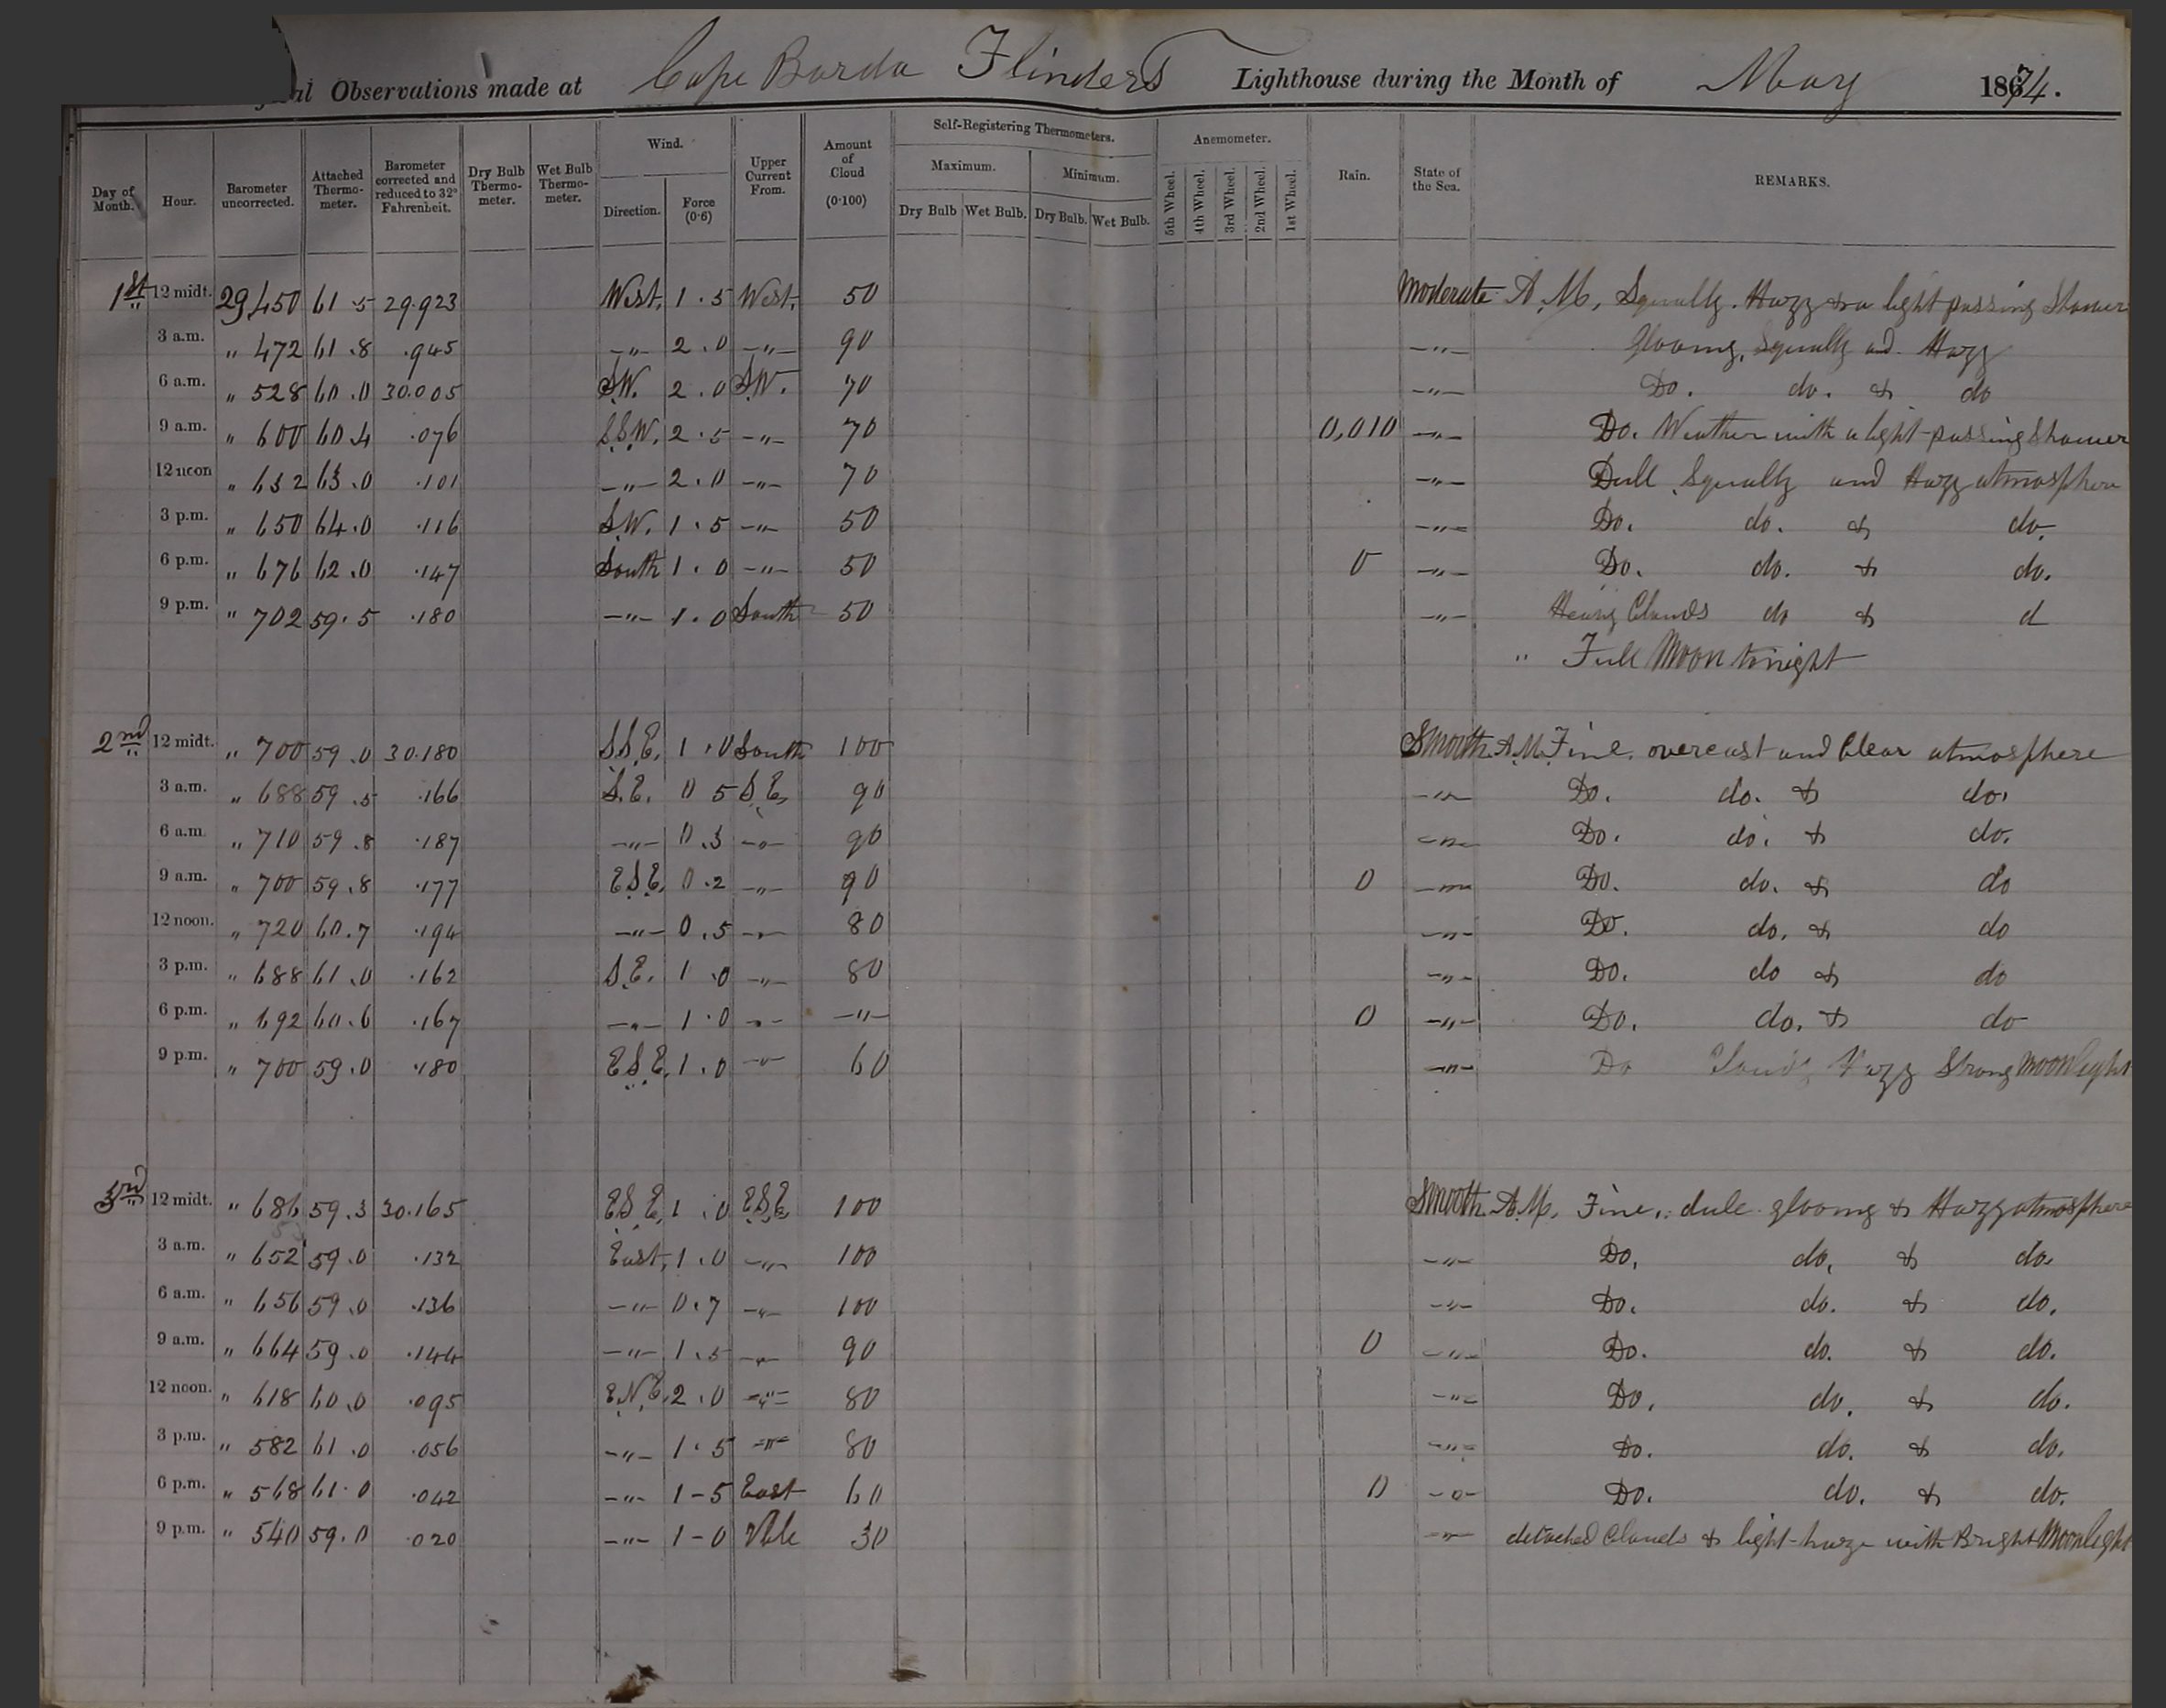 al Observations made at Cape Borda Flinders Lighthouse during the Month of May 1874.
Day of Month. Hour. Barometer uncorrected. Attached Thermo-meter. Barometer corrected and reduced to 32° Fahrenheit. Dry Bulb Thermo-meter. Wet Bulb Thermo-meter. Wind. Direction. Force (0·6) Upper Current From. Amount of Cloud (0·100) Self-Registering Thermometers. Maximum. Dry Bulb Wet Bulb. Minimum. Dry Bulb. Wet Bulb. Anemometer. 5th Wheel. 4th Wheel. 3rd Wheel. 2nd Wheel. 1st Wheel. Rain. State of the Sea. REMARKS.
1st 12 midt. 29,450 61.5 29.923 West. 1.5 West. 50 Moderate A.M. Squally. Hazy & a light passing Shower
3 a.m. " 472 61.8 .945 -"- 2.0 -"- 90 -"- gloomy, Squally and Hazy
6 a.m. " 528 60.0 30.005 S.W. 2.0 S.W. 70 -"- Do. do. & do
9 a.m. " 600 60.4 .076 S.S.W. 2.5 -"- 70 0,010 -"- Do. Weather with a light passing Shower
12 noon " 632 63.0 .101 -"- 2.0 -"- 70 -"- Dull Squally and Hazy atmosphere
3 p.m. " 650 64.0 .116 S.W. 1.5 -"- 50 -"- Do. do. & do.
6 p.m. " 676 62.0 .147 South 1.0 -"- 50 0 -"- Do. do. & do.
9 p.m. " 702 59.5 .180 -"- 1.0 South 50 -"- Heavy Clouds do & d
" Full Moon tonight
2nd 12 midt. " 700 59.0 30.180 S.S.E. 1.0 South 100 Smooth A.M. Fine, overcast and Clear atmosphere
3 a.m. " 688 59.5 .166 S.E. 0 5 S.E, 90 -"- Do. do. & do.
6 a.m. " 710 59.8 .187 -"- 0.3 -"- 90 -"- Do. do. & do.
9 a.m. " 700 59.8 .177 E.S.E. 0.2 -"- 90 0 -"- Do. do. & do
12 noon. " 720 60.7 .194 -"- 0.5 -"- 80 -"- Do. do. & do
3 p.m. " 688 61.0 .162 S.E. 1.0 -"- 80 -"- Do. do & do
6 p.m. " 692 60.6 .167 -"- 1.0 -"- -"- 0 -"- Do. do. & do
9 p.m. " 700 59.0 .180 E.S.E. 1.0 -"- 60 -"- Do Cloudy Hazy Strong Moonlight
3rd 12 midt. " 686 59.3 30.165 E.S.E. 1.0 E.S.E. 100 Smooth A.M. Fine, dull gloomy & Hazy atmosphere
3 a.m. " 652 59.0 .132 East, 1.0 -"- 100 -"- Do, do, & do.
6 a.m. " 656 59.0 .136 -"- 0.7 -"- 100 -"- Do. do. & do.
9 a.m. " 664 59.0 .144 -"- 1.5 -"- 90 0 -"- Do. do. & do.
12 noon. " 618 60.0 .095 E.N.E. 2.0 -"- 80 -"- Do, do. & do.
3 p.m. " 582 61.0 .056 -"- 1.5 -"- 80 -"- Do. do. & do.
6 p.m. " 568 61.0 .042 -"- 1-5 East 60 0 -"- Do. do. & do.
9 p.m. " 540 59.0 .020 -"- 1-0 Vble 30 -"- detached Clouds & light haze with Bright Moonlight